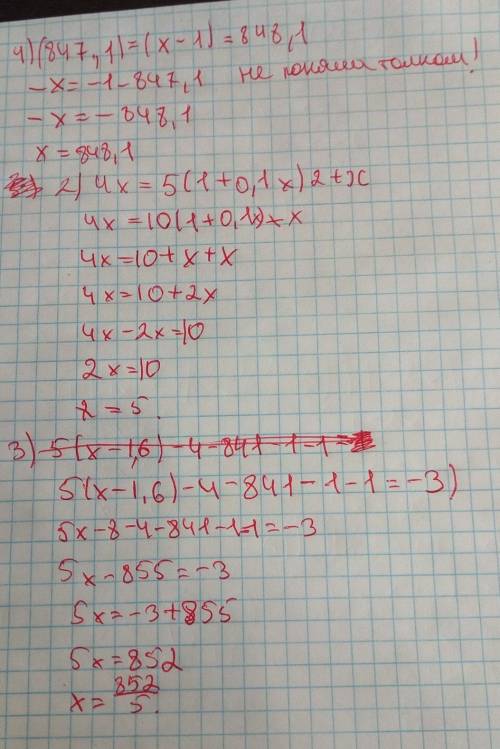 1)(847,1)=(x-1)=848,1
-x=-1-847,1 не поняла толком!
-x=-848,1
x=848,1
2) 4x=5(1+0,1x)2+x
4x=10(1+0,1x)+x
4x=10+x+x
4x=10+2x
4x-2x=10
2x=10
x=5.
3) 5(x-1,6)-4-841-1-1=
5(x-1,6)-4-841-1-1=-3)
5x-8-4-841-1-1=-3
5x-855=-3
5x=-3+855
5x=852
x=852/5.